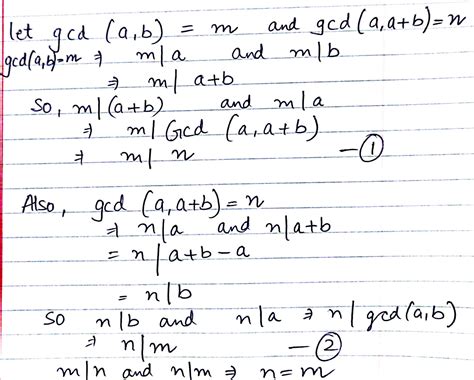 let gcd (a,b) = m and gcd(a,a+b)=n
gcd(a,b)=m ⇒ m|a and m|b
⇒ m| a+b
So, m|(a+b) and m|a
⇒ m| Gcd (a,a+b)
⇒ m| n —①
Also, gcd (a,a+b)=n
⇒ n|a and n|a+b
= n | a+b-a
= n|b
so n|b and n|a ⇒ n| gcd(a,b)
⇒ n|m —②
m|n and n|m ⇒ n=m